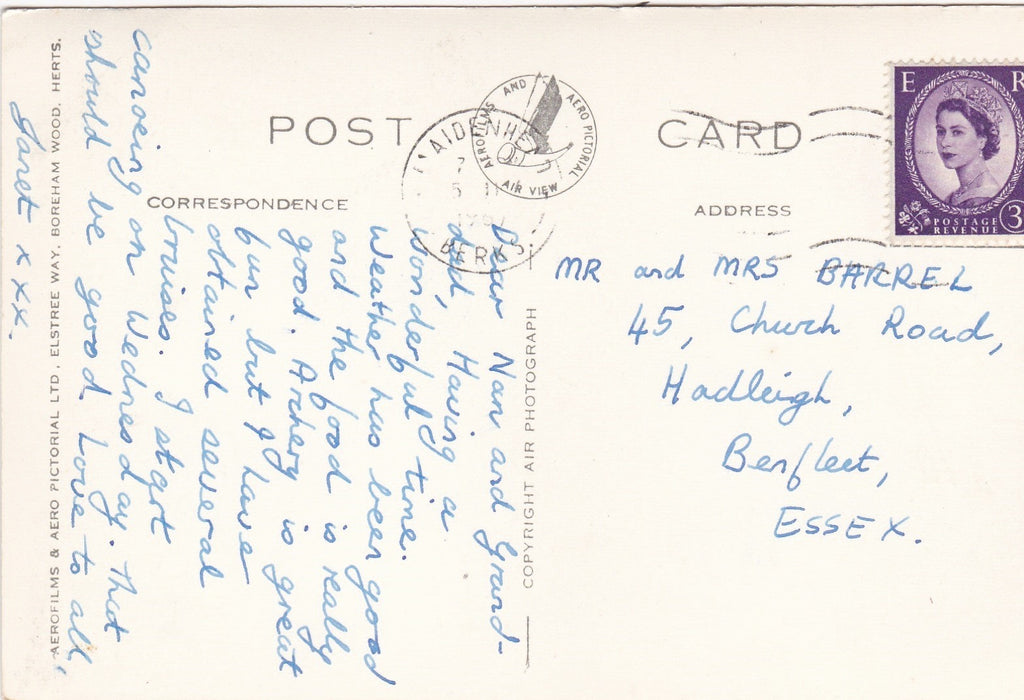 POST CARD
CORRESPONDENCE
ADDRESS
AEROFILMS AND AERO PICTORIAL
AIR VIEW
MAIDENHEAD
BERKS.
E R
POSTAGE
REVENUE
3
Dear Nan and Grand-
dad, Having a
wonderful time.
Weather has been good
and the food is really
good. Archery is great
fun but I have
obtained several
bruises. I start
canoeing on Wednesday. That
should be good. Love to all,
Janet x x x.
MR and MRS BARREL
45, Church Road,
Hadleigh,
Benfleet,
ESSEX.
COPYRIGHT AIR PHOTOGRAPH
AEROFILMS & AERO PICTORIAL LTD, ELSTREE WAY, BOREHAM WOOD, HERTS.